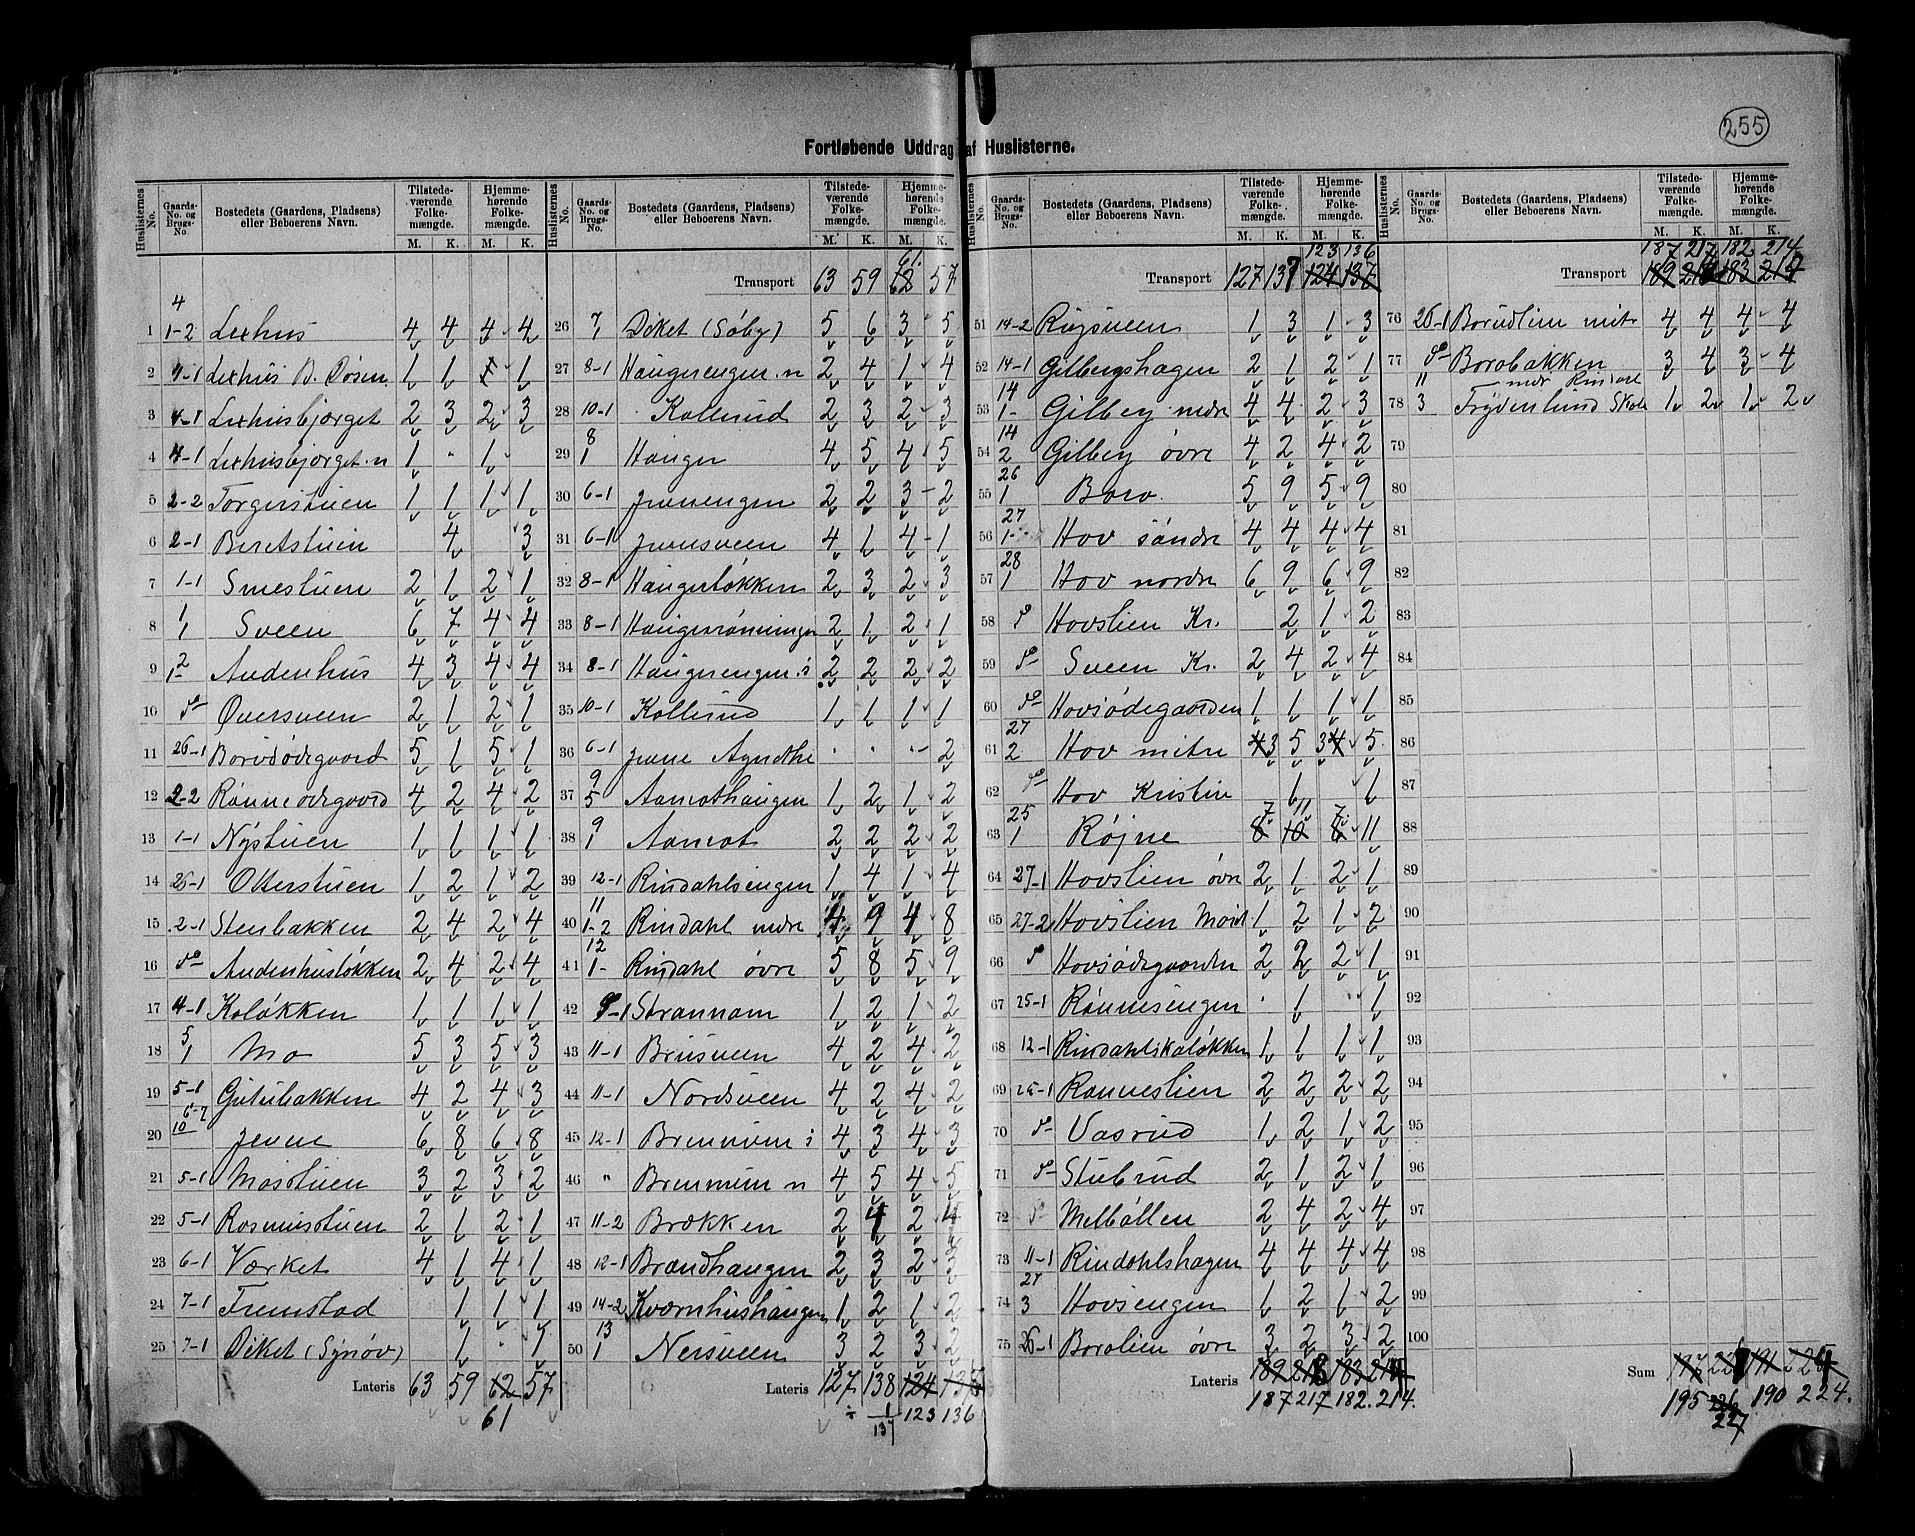 255
Fortløbende Uddrag af Huslisterne.
Huslisternes No. | Gaards-No. og Brugs-No. | Bostedets (Gaardens, Pladsens) eller Beboerens Navn. | Tilstedeværende Folkemængde. M. K. | Hjemmehørende Folkemængde. M. K.
1 4 1-2 Lexhus 4 4 4 4
2 4-1 Lexhus B. Døsen 1 1 1
3 4-1 Lexhusbjørget 2 3 2 3
4 4-1 Lexhusbjørget n 1 - 1
5 2-2 Torgerstuen 1 1 1 1
6 2-1 Beretstuen 4 3
7 1-1 Smestuen 2 1 2 1
8 1 1 Sveen 6 7 4 4
9 2 1- Audenhus 4 3 4 4
10 do Øversveen 2 1 2 1
11 26-1 Borodødegaard 5 1 5 1
12 2-2 Rønneødegaard 4 2 4 2
13 1-1 Nystuen 1 1 1 1
14 26-1 Olterstuen 1 2 1 2
15 2-1 Stenbakken 2 4 2 4
16 do Audenhusløkken 2 4 2 4
17 4-1 Koløkken 1 1 1 1
18 5 1 Mo 5 3 5 3
19 5-1 Gutubakken 4 2 4 3
20 6-7 10 Jevne 6 8 6 8
21 5-1 Mostuen 3 2 3 2
22 5-1 Rasmusstuen 2 1 2 1
23 6-1 Værket 4 1 4 1
24 7-1 Fremstad 1 1 1
25 7-1 Diket (Synøv) 1 - 1
Lateris 63 59 62 57
61
61.
Transport 63 59 62 57
26 7 1 Diket (Søby) 5 6 3 5
27 8-1 Haugerengen n 2 4 1 4
28 10-1 Kollerud 2 3 2 3
29 8 1 Hauger 4 5 4 5
30 6-1 Jevnengen 2 2 3 2
31 6-1 Jevnsveen 4 1 4 1
32 8-1 Haugerløkken 2 3 2 3
33 8-1 Haugerrønningen 2 1 2 1
34 8-1 Haugerengen s 2 2 2 2
35 10-1 Kollerud 1 1 1 1
36 6-1 Jevne Agnethe - - - 2
37 9 5 Aamothaugen 1 2 1 2
38 9 1 Aamot 2 2 2 2
39 12-1 Rindahlsengen 1 4 1 4
40 11 1-2 Rindahl nedre 4 9 4 8
41 12 1- Rindahl øvre 5 8 5 9
42 9-1 Strannam 1 2 1 2
43 11-1 Brusveen 4 2 4 2
44 11-1 Nordsveen 4 2 4 2
45 12-1 Brennum s 4 3 4 3
46 " Brennum n 4 5 4 5
47 11-2 Brækken 2 4 2 4
48 12-1 Brændhaugen 2 3 2 3
49 14-2 Kværnhushaugen 1 2 1 2
50 13 1 Nersveen 3 2 3 2
Lateris 127 138 124
÷ 1 123 136
137
Huslisternes No. | Gaards-No. og Brugs-No. | Bostedets (Gaardens, Pladsens) eller Beboerens Navn. | Tilstedeværende Folkemængde. M. K. | Hjemmehørende Folkemængde. M. K.
123 136
Transport 127 137 124 137
51 14-2 Rugsveen 1 3 1 3
52 14-1 Gilbergshagen 2 1 2 1
53 14 1- Gilberg nedre 4 4 2 3
54 14 2 Gilberg øvre 4 2 4 2
55 26 1 Boro 5 9 5 9
56 27 1- Hov søndre 4 4 4 4
57 28 1 Hov nordre 6 9 6 9
58 do Hovslien Kr. 2 1 2
59 do Sveen Kr. 2 4 2 4
60 do Hovsødegaarden 1 1 1 1
61 27 2 Hov mitre 4 3 5 3 4 5
62 do Hov Kristin 1 1
63 25 1 Røjne 8 7 10 11 8 7 11
64 27-1 Hovslien øvre 2 1 2 1
65 27-2 Hovslien 1 2 1 2
66 do Hovsødegaarden 2 2 2 1
67 25-1 Rønnesengen - 1 - 1
68 12-1 Rindahlskaløkken 1 1 1 1
69 25-1 Rønneslien 2 2 2 2
70 do Vasrud 1 2 1 2
71 do Stubrud 2 1 2 1
72 do Melbøllen 2 4 2 4
73 11-1 Rindahlshagen 4 4 4 4
74 27 3 Hovsengen 1 2 1 2
75 26-1 Borolien øvre 3 2 3 2
Lateris 189 218 183
187 217 182. 214.
187 217 182 214
Transport 189 183
76 26-1 Borudlien mitr 4 4 4 4
77 do Borobakken 3 4 3 4
78 11 3 Frydenlund Skole 1 2 1 2
79
80
81
82
83
84
85
86
87
88
89
90
91
92
93
94
95
96
97
98
99
100
Sum 191
195 226 190 224.
227